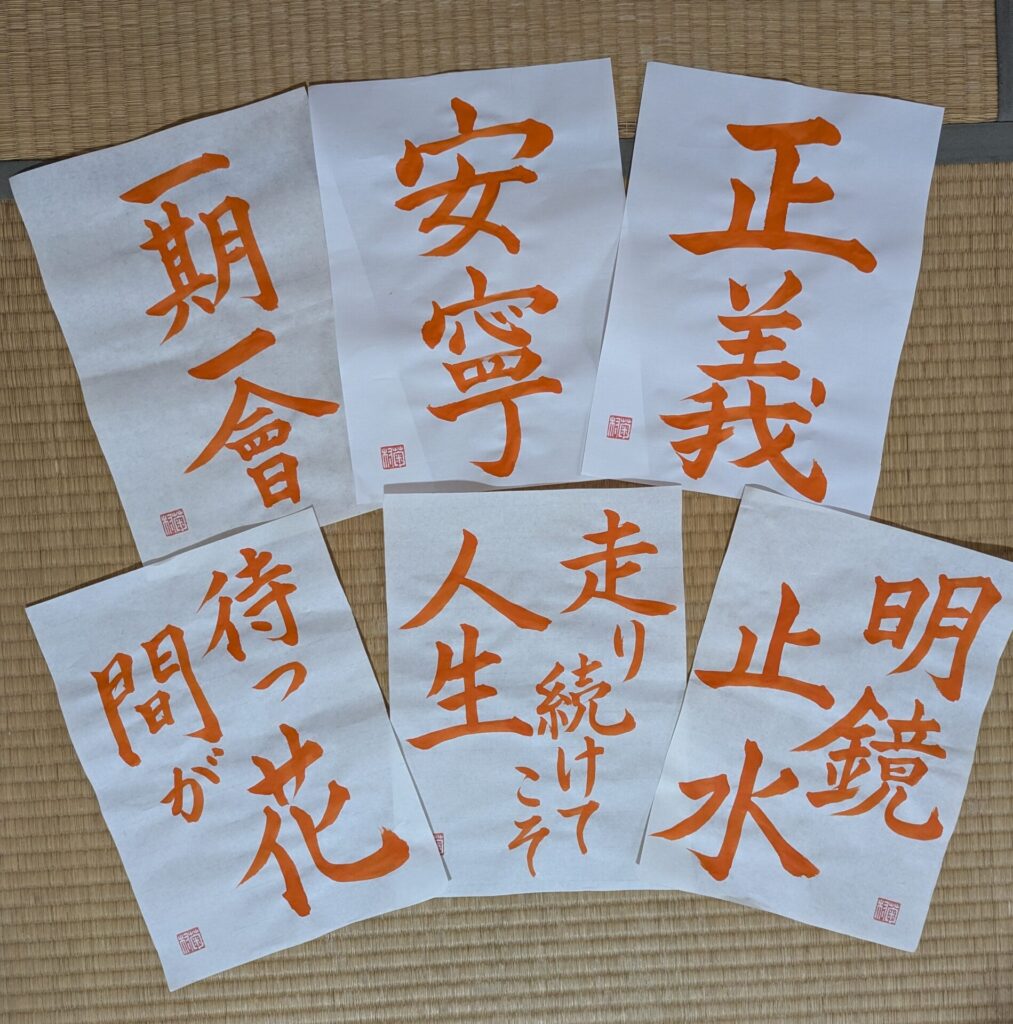 一期一會
安寧
正義
待つ
間が
花
走り続けて
こそ
人生
明鏡
止水